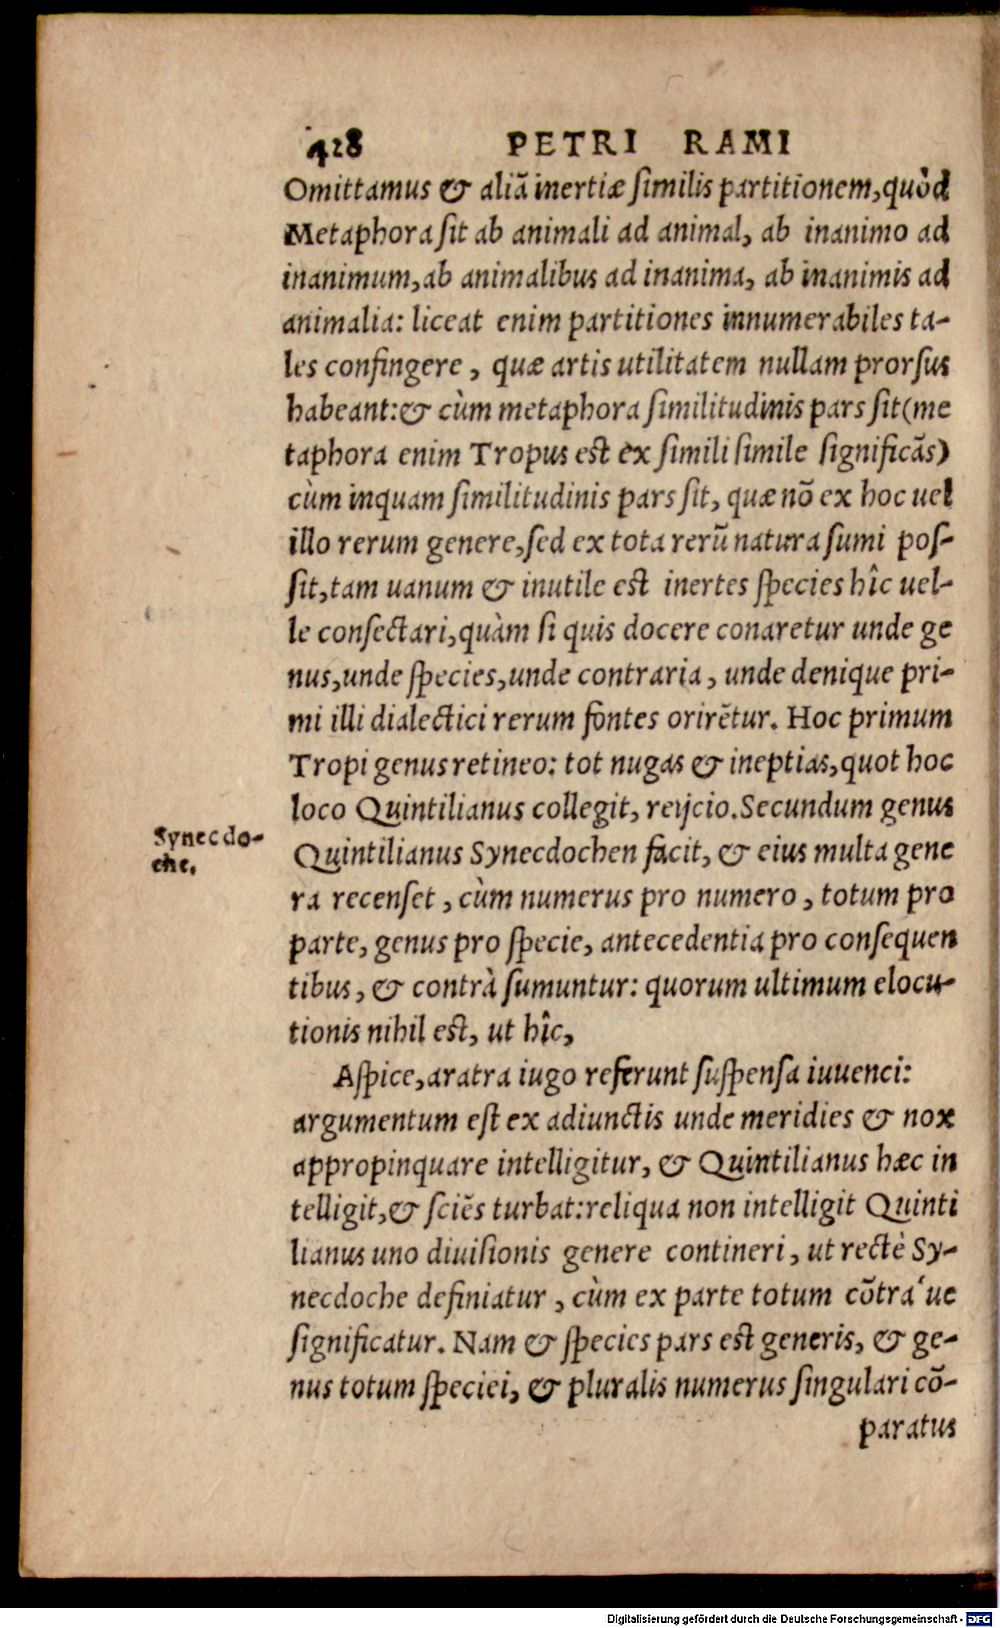 428 PETRI RAMI
Omittamus & aliã inertiæ ſimilis partitionem,quòd
Metaphora ſit ab animali ad animal, ab inanimo ad
inanimum,ab animalibus ad inanima, ab inanimis ad
animalia: liceat enim partitiones innumerabiles ta-
les confingere, quæ artis utilitatem nullam prorſus
habeant:& cùm metaphora ſimilitudinis pars ſit(me
taphora enim Tropus eſt ex ſimili ſimile ſignificãs)
cùm inquam ſimilitudinis pars ſit, quæ nõ ex hoc uel
illo rerum genere,ſed ex tota rerũ natura ſumi poſ-
ſit,tam uanum & inutile eſt inertes ſpecies hîc uel-
le conſectari,quàm ſi quis docere conaretur unde ge
nus,unde ſpecies,unde contraria, unde denique pri-
mi illi dialectici rerum fontes orirẽtur. Hoc primum
Tropi genus retineo: tot nugas & ineptias,quot hoc
loco Quintilianus collegit, reijcio.Secundum genus
Synecdo-
che.
Quintilianus Synecdochen facit, & eius multa gene
ra recenſet, cùm numerus pro numero, totum pro
parte, genus pro ſpecie, antecedentia pro conſequen
tibus, & contrà ſumuntur: quorum ultimum elocu-
tionis nihil eſt, ut hîc,
Aſpice,aratra iugo referunt ſuſpenſa iuuenci:
argumentum eſt ex adiunctis unde meridies & nox
appropinquare intelligitur, & Quintilianus hæc in
telligit,& ſciẽs turbat:reliqua non intelligit Quinti
lianus uno diuiſionis genere contineri, ut rectè Sy-
necdoche definiatur, cùm ex parte totum cõtra'ue
ſignificatur. Nam & ſpecies pars eſt generis, & ge-
nus totum ſpeciei, & pluralis numerus ſingulari cõ-
paratus
Digitalisierung gefördert durch die Deutsche Forschungsgemeinschaft - DFG